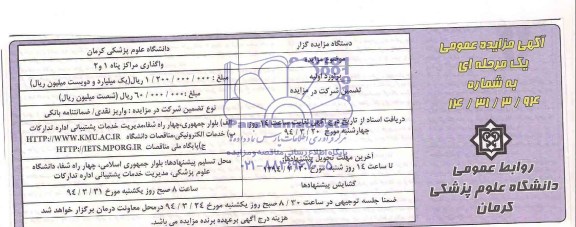 آگهی مزایده عمومی
یک مرحله ای
به شماره
۱۴/۳۱/۳/۹۴
روابط عمومی
دانشگاه علوم پزشکی
کرمان
دستگاه مزایده گزار
دانشگاه علوم پزشکی کرمان
موضوع مزایده
واگذاری مراکز پناه ۱ و ۲
برآورد اولیه
مبلغ : ۱/۲۰۰/۰۰۰/۰۰۰ ریال(یک میلیارد و دویست میلیون ریال)
تضمین شرکت در مزایده
مبلغ : ۶۰/۰۰۰/۰۰۰ ریال (شصت میلیون ریال)
نوع تضمین شرکت در مزایده : واریز نقدی/ ضمانتنامه بانکی
دریافت اسناد از تاریخ
چهارشنبه مورخ ۹۴/۳/۲۰
الف) بلوار جمهوری،چهار راه شفا،مدیریت خدمات پشتیبانی اداره تدارکات
ب) خدمات الکترونیکی،مناقصات دانشگاه HTTP://WWW.KMU.AC.IR
ج)پایگاه ملی مناقصات HTTP://IETS.MPORG.IR
آخرین مهلت تحویل پیشنهادها:
تا ساعت ۱۴ روز شنبه مورخ
محل تسلیم پیشنهادها: بلوار جمهوری اسلامی، چهار راه شفا، دانشگاه
علوم پزشکی، مدیریت خدمات پشتیبانی اداره تدارکات
گشایش پیشنهادها
ساعت ۸ صبح روز یکشنبه مورخ ۹۴/۳/۳۱
ضمنا جلسه توجیهی در ساعت ۸/۳۰ صبح روز یکشنبه مورخ ۹۴/۳/۲۴ درمحل معاونت درمان برگزار خواهد شد
هزینه درج آگهی برعهده برنده مزایده می باشد.